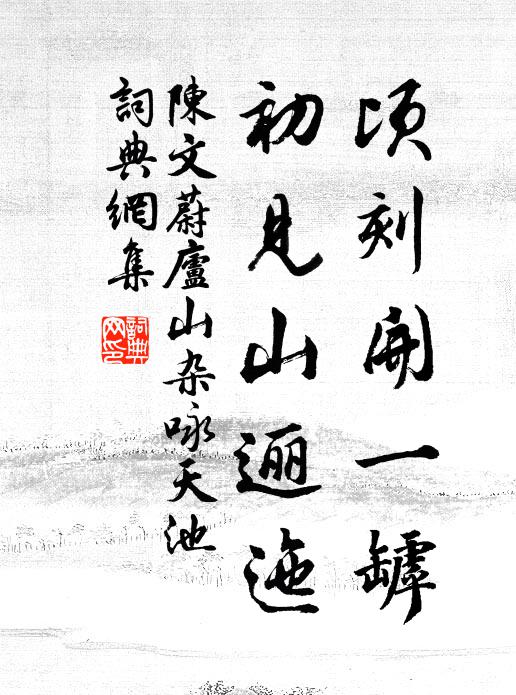 頃刻開一罅
初見山逦迤
陳文蔚廬山杂咏天池
詞典網集
詞典
网印